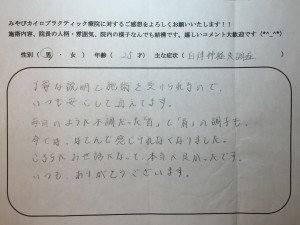 みやびカイロプラクティック療院に対するご感想をよろしくお願いいたします！！
施術内容、院長の人柄・雰囲気、院内の様子なんでも結構です。厳しいコメント大歓迎です (*^_^*)
性別（ 男 ・ 女 ） 年齢（ 25才 ） 主な症状（ 自律神経失調症
丁寧な説明と施術をしてくれるので、
いつも安心して通えてます。
毎日のように不調だった「首」と「肩」の調子も、
今では、ほとんど感じられなくなりました。
こちらにお世話になって、本当に良かったです。
いつも、ありがとうございます。